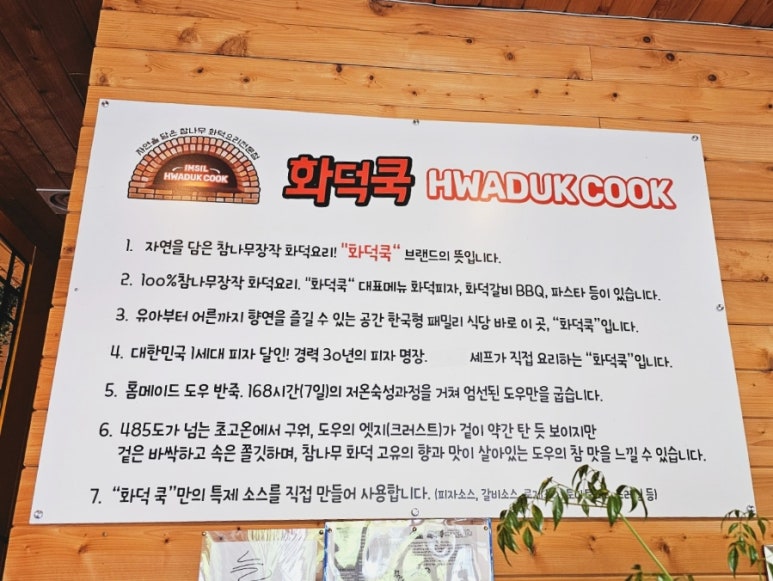 자연을 담은 참나무 화덕요리전문점
IMSIL
HWADUK COOK
화덕쿡 HWADUK COOK
1. 자연을 담은 참나무장작 화덕요리! "화덕쿡“ 브랜드의 뜻입니다.
2. 100%참나무장작 화덕요리. "화덕쿡“ 대표메뉴 화덕피자, 화덕갈비 BBQ, 파스타 등이 있습니다.
3. 유아부터 어른까지 향연을 즐길 수 있는 공간 한국형 패밀리 식당 바로 이 곳, “화덕쿡”입니다.
4. 대한민국 1세대 피자 달인! 경력 30년의 피자 명장. 셰프가 직접 요리하는 “화덕쿡”입니다.
5. 홈메이드 도우 반죽. 168시간(7일)의 저온숙성과정을 거쳐 엄선된 도우만을 굽습니다.
6. 485도가 넘는 초고온에서 구워, 도우의 엣지(크러스트)가 겉이 약간 탄 듯 보이지만
겉은 바싹하고 속은 쫄깃하며, 참나무 화덕 고유의 향과 맛이 살아있는 도우의 참 맛을 느낄 수 있습니다.
7. “화덕 쿡”만의 특제 소스를 직접 만들어 사용합니다. (피자소스, 갈비소스, 등)